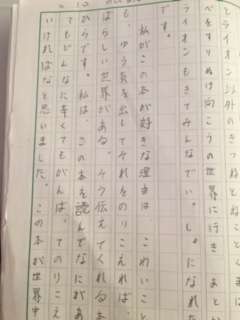 とライオン以外のきつねとねこと
べをすりぬけ向こうの世界に行き、まと
ライオンもきてみんなでい。し。になれた
です。
私がこの本が好きな理由は、こわいこと
も、ゆう気を出してそれをのりこえれば、
ばらしい世界がある。そう伝えてくれるま
からです。私は、この本を読んでなにがあ
てもどんなに辛くてもがんばってのりこえ
いければなと思いました。この本が世界中